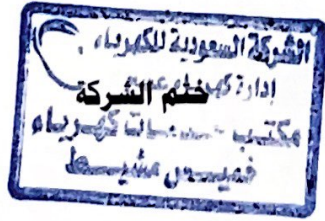 الشركة السعودية للكهرباء
إدارة كهرباء
ختم الشركة
مكتب خدمات كهرباء
خميس مشيط